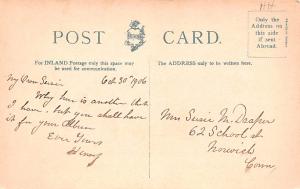 HH
POST CARD.
Only the
Address on
this side
if sent
Abroad.
For INLAND Postage only this space may
be used for communication.
The ADDRESS only to be written here.
Oct 30th 1906
My Dear Susie
Why here is another that
I have. but you shall have
it for your Album
Ever Yours
Mrs Susie M. Draper
62 School st
Norwich
Conn.